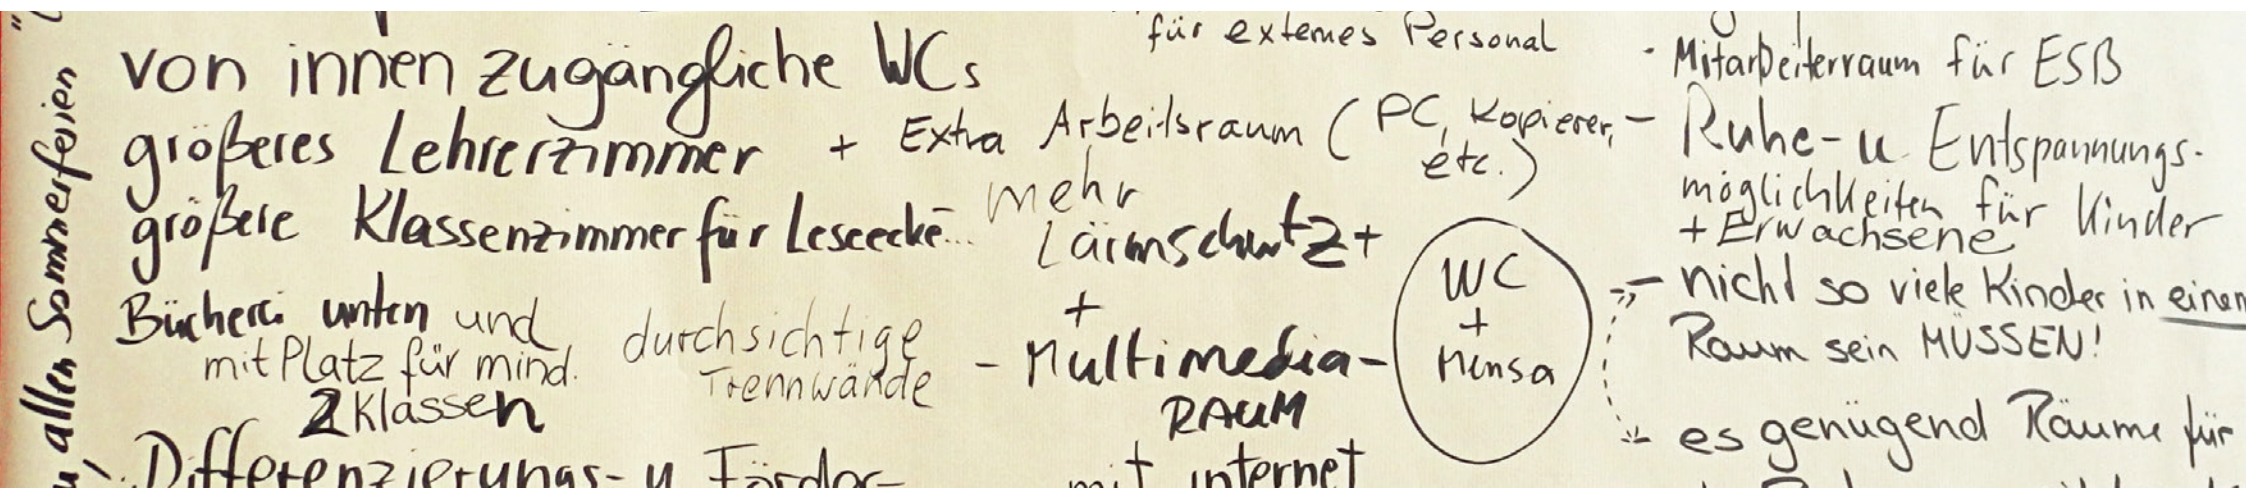 allen Sommerferien
von innen zugängliche WCs
größeres Lehrerzimmer + Extra Arbeitsraum (PC, Kopierer,
etc.)
größere Klassenzimmer für Leseecke...
Bücherei unten und
mit Platz für mind.
2 Klassen
durchsichtige
Trennwände
Differenzierungs- u Förder-
für externes Personal
mehr
Lärmschutz +
+
- Multimedia-
RAUM
mit internet
WC
+
Mensa
· Mitarbeiterraum für ESB
- Ruhe- u. Entspannungs-
möglichkeiten für Kinder
+ Erwachsene
- nicht so viele Kinder in einem
Raum sein MÜSSEN!
es genügend Räume für